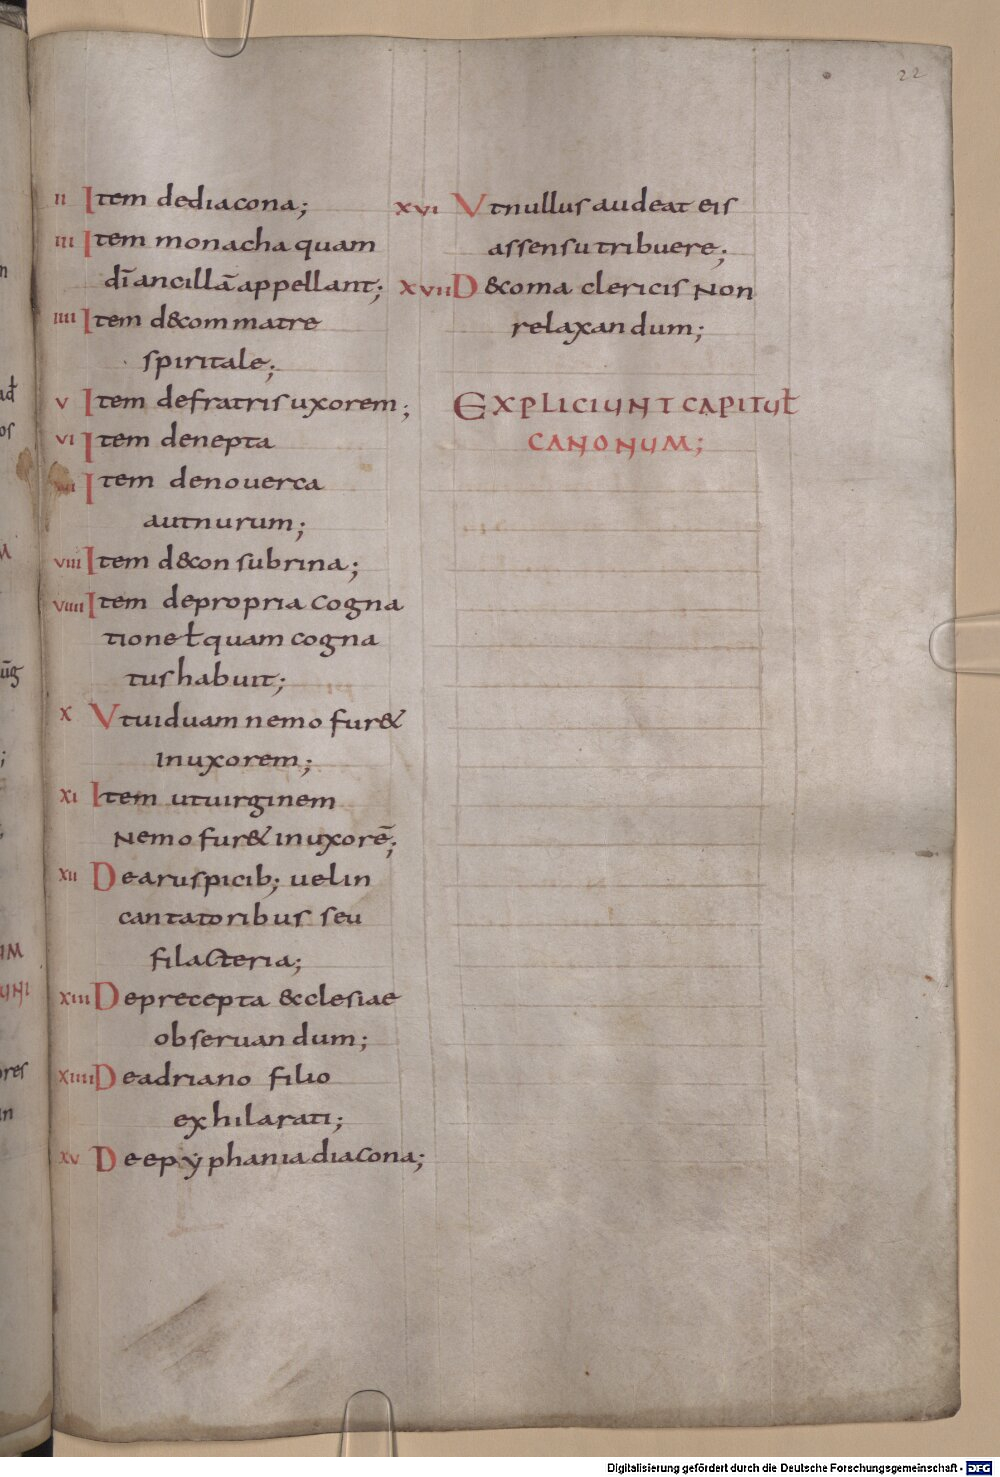 22
II Item dediacona;
III Item monacha quam
dī ancillā appellant;
IIII Item d&commatre
spiritale;
V Item defratris uxorem;
VI Item denepta
VII Item denouerca
aut nurum;
VIII Item d&consubrina;
VIIII Item depropria cogna
tione ł quam cogna
tus habuit;
X Vt uiduam nemo fur&
in uxorem;
XI Item ut uirginem
Nemo fur& in uxorē;
XII De aruspicib; uel in
cantatoribus seu
filacteria;
XIII De precepta &cclesiae
obseruandum;
XIIII De adriano filio
exhilarati;
XV De epẏphania diacona;
XVI Vt nullus audeat eis
assensu tribuere;
XVII D&coma clericis Non
relaxandum;
EXPLICIUNT CAPITUŁ
CANONUM;
Digitalisierung gefördert durch die Deutsche Forschungsgemeinschaft - DFG